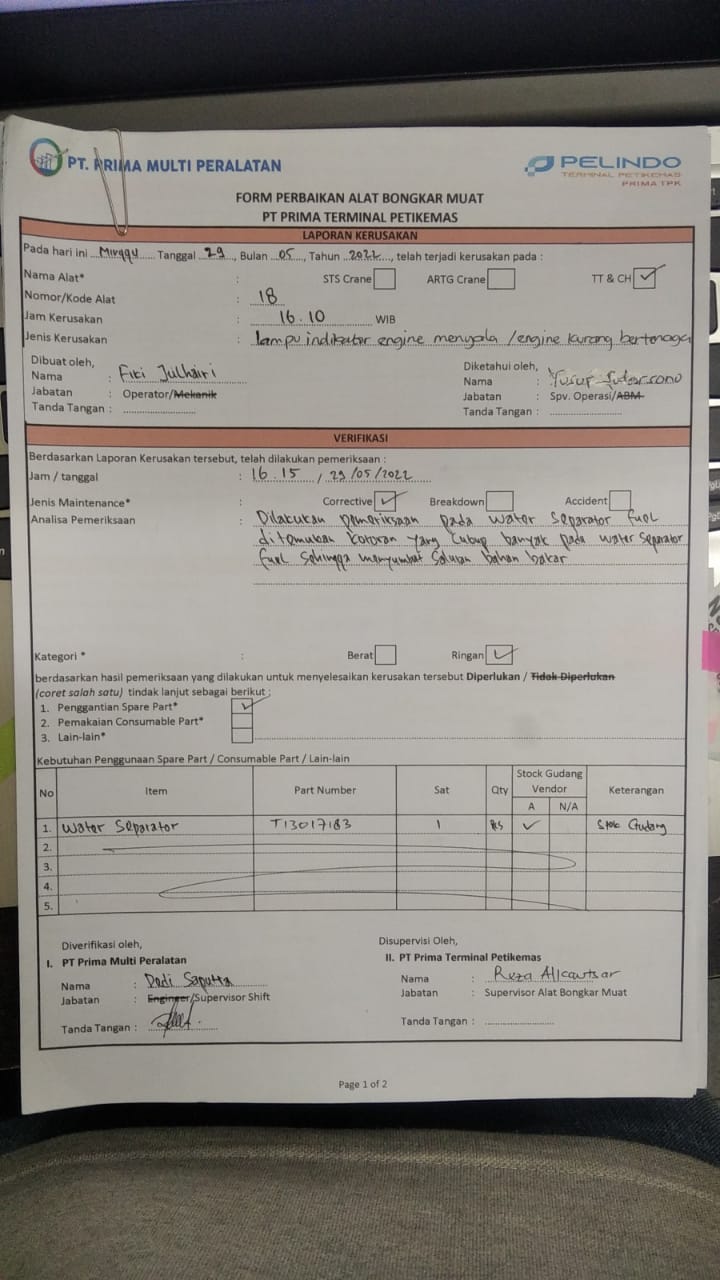 PT. PRIMA MULTI PERALATAN
PELINDO
TERMINAL PETIKEMAS
PRIMA TPK
FORM PERBAIKAN ALAT BONGKAR MUAT
PT PRIMA TERMINAL PETIKEMAS
LAPORAN KERUSAKAN
Pada hari ini Minggu Tanggal 29, Bulan 05, Tahun 2022, telah terjadi kerusakan pada :
Nama Alat* : STS Crane ARTG Crane TT & CH ✓
Nomor/Kode Alat : 18
Jam Kerusakan : 16.10 WIB
Jenis Kerusakan : lampu indikator engine menyala /engine kurang bertenaga
Dibuat oleh, Diketahui oleh,
Nama : Fiki Julhairi Nama : Yusup Sudarsono
Jabatan : Operator/Mekanik Jabatan : Spv. Operasi/ABM
Tanda Tangan : Tanda Tangan :
VERIFIKASI
Berdasarkan Laporan Kerusakan tersebut, telah dilakukan pemeriksaan :
Jam / tanggal : 16.15 / 29/05/2022
Jenis Maintenance* : Corrective ✓ Breakdown Accident
Analisa Pemeriksaan : Dilakukan pemeriksaan pada water separator fuel
ditemukan kotoran yang cukup banyak pada water separator
fuel sehingga menyumbat saluran bahan bakar
Kategori * : Berat Ringan ✓
berdasarkan hasil pemeriksaan yang dilakukan untuk menyelesaikan kerusakan tersebut Diperlukan / Tidak Diperlukan
(coret salah satu) tindak lanjut sebagai berikut :
1. Penggantian Spare Part* ✓
2. Pemakaian Consumable Part*
3. Lain-lain*
Kebutuhan Penggunaan Spare Part / Consumable Part / Lain-lain
No Item Part Number Sat Qty Stock Gudang Vendor Keterangan
A N/A
1. Water Separator T13017183 1 ✓ Stok Gudang
2.
3.
4.
5.
Diverifikasi oleh, Disupervisi Oleh,
I. PT Prima Multi Peralatan II. PT Prima Terminal Petikemas
Nama : Dedi Saputra Nama : Reza Alkautsar
Jabatan : Engineer/Supervisor Shift Jabatan : Supervisor Alat Bongkar Muat
Tanda Tangan : Tanda Tangan :
Page 1 of 2